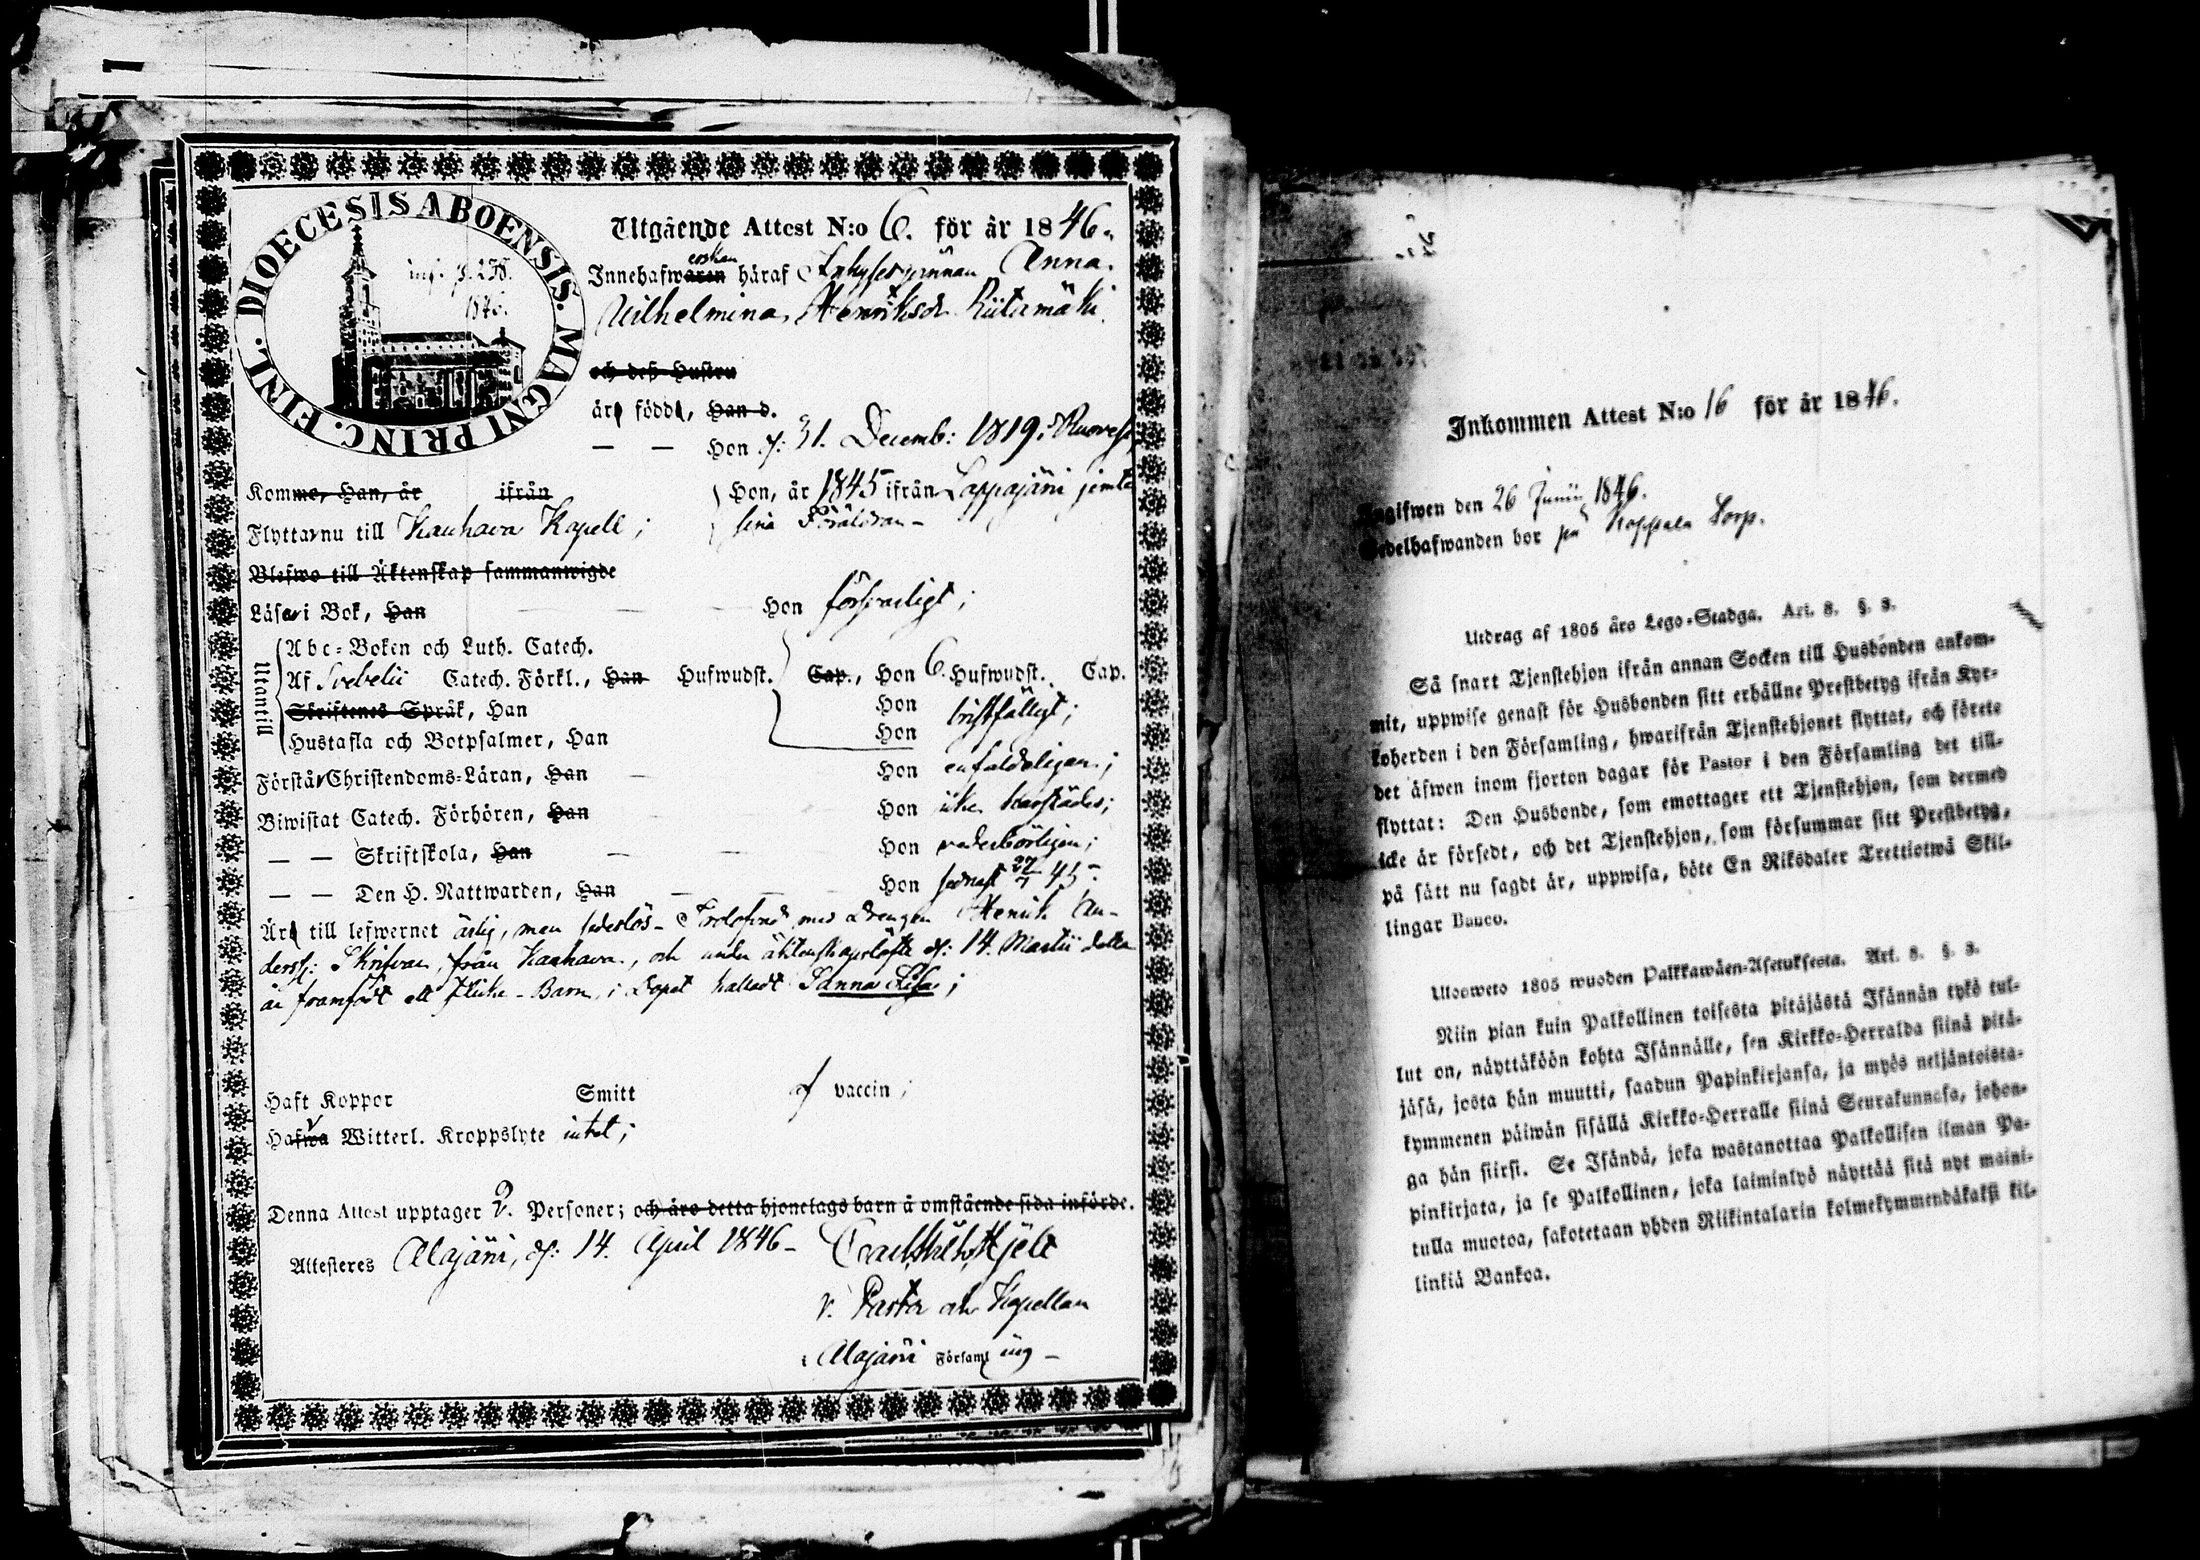 DIOECESIS ABOENSIS. MAGNI PRINC. FINL.
inf. p. 238.
1846.
Utgående Attest N:o 6. för år 1846.
erskan
Innehafwaren häraf Inhysespiønan Anna
Wilhelmina Henriksdr Riitamäki.
och deß Hustru
äro född, Han d.
— — Hon d: 31. Decemb: 1819 i Ruovesi
Komme, Han, år ifrån Hon, år 1845 ifrån Lappajärvi jemte
sina Föräldrar –
Flyttar nu till Kauhava Kapell;
Blefwo till Äktenskap sammanwigde
Läsa i Bok, Han — — — Hon försvarligt;
Utantill
Abc-Boken och Luth. Catech.
Af Svebelii Catech. Förkl., Han Hufwudst. Cap., Hon 6. Hufwudst. Cap.
Skriftenes Språk, Han Hon bristfälligt;
Hustafla och Botpsalmer, Han Hon
Förstår Christendoms-Läran, Han — Hon enfaldeligen;
Biwistat Catech. Förhören, Han Hon icke härstädes;
— — Skriftskola, Han — — Hon vederbörligen;
— — Den H. Nattwarden, Han — — — Hon sednast 27/7 45.
Är till lefwernet ärlig, men sedeslös – Trolofvad med Drengen Henrik An-
derss: Skrifvar, från Kauhava, och under äktenskapslöfte d: 14. Martii detta
år framfödt ett flicke-Barn, i Dopet kalladt Sanna Lisa;
Haft Koppor Smitt af vaccin;
Hafwa Witterl. Kroppslyte intet;
Denna Attest upptager 2. Personer; och äro detta hjonelags barn å omstående sida införde.
Attesteras Alajärvi, d: 14. April 1846 –
v. Pastor och Kapellan
i Alajärvi Församl ing –
Inkommen Attest N:o 16 för år 1846.
Ingifwen den 26 Junii 1846.
Sedelhafwanden bor på Koppala Dorp.
Utdrag af 1805 års Lego-Stadga. Art. 8. §. 3.
Så snart Tjenstehjon ifrån annan Socken till Husbonden ankom-
mit, uppwise genast för Husbonden sitt erhållne Prestbetyg ifrån Kyr-
koherden i den Församling, hwarifrån Tjenstehjonet flyttat, och förete
det äfwen inom fjorton dagar för Pastor i den Församling det till-
flyttat: Den Husbonde, som emottager ett Tjenstehjon, som dermed
icke är försedt, och det Tjenstehjon, som försummar sitt Prestbetyg,
på sätt nu sagdt är, uppwisa, böte En Riksdaler Trettiotwå Skil-
lingar Banco.
Ulosweto 1805 wuoden Palkkawäen-Asetuksesta. Art. 8. §. 3.
Niin pian kuin Palkollinen toisesta pitäjästä Isännän tykö tul-
lut on, näyttäköön kohta Isännälle, sen Kirkko-Herralda siinä pitä-
jäsä, josta hän muutti, saadun Papinkirjansa, ja myös neljäntoista-
kymmenen päiwän sisällä Kirkko-Herralle siinä Seurakunnasa, johon-
ga hän siirsi. Se Isändä, joka wastanottaa Palkollisen ilman Pa-
pinkirjata, ja se Palkollinen, joka laiminlyö näyttää sitä nyt maini-
tulla muotoa, sakotetaan yhden Riikintalarin kolmekymmendäkaksi kil-
linkiä Bankoa.